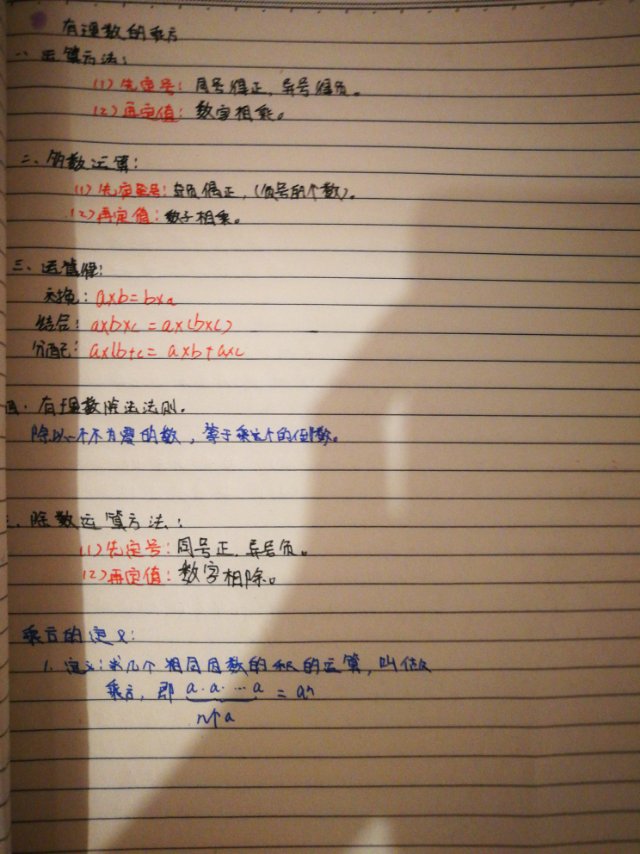 有理数的乘方
一、运算方法：
(1)先定号：同号得正，异号得负。
(2)再定值：数字相乘。
二、负数运算：
(1)先定号：奇负偶正，(负号的个数)。
(2)再定值：数字相乘。
三、运算律：
交换：a×b=b×a
结合：a×b×c=a×(b×c)
分配：a×(b+c)=a×b+a×c
四、有理数除法法则。
除以一个不为零的数，等于乘这个的倒数。
、除数运算方法：
(1)先定号：同号正，异号负。
(2)再定值：数字相除。
乘方的定义：
1、定义：求几个相同因数的积的运算，叫做
乘方，即 a·a·…a = aⁿ
n个a